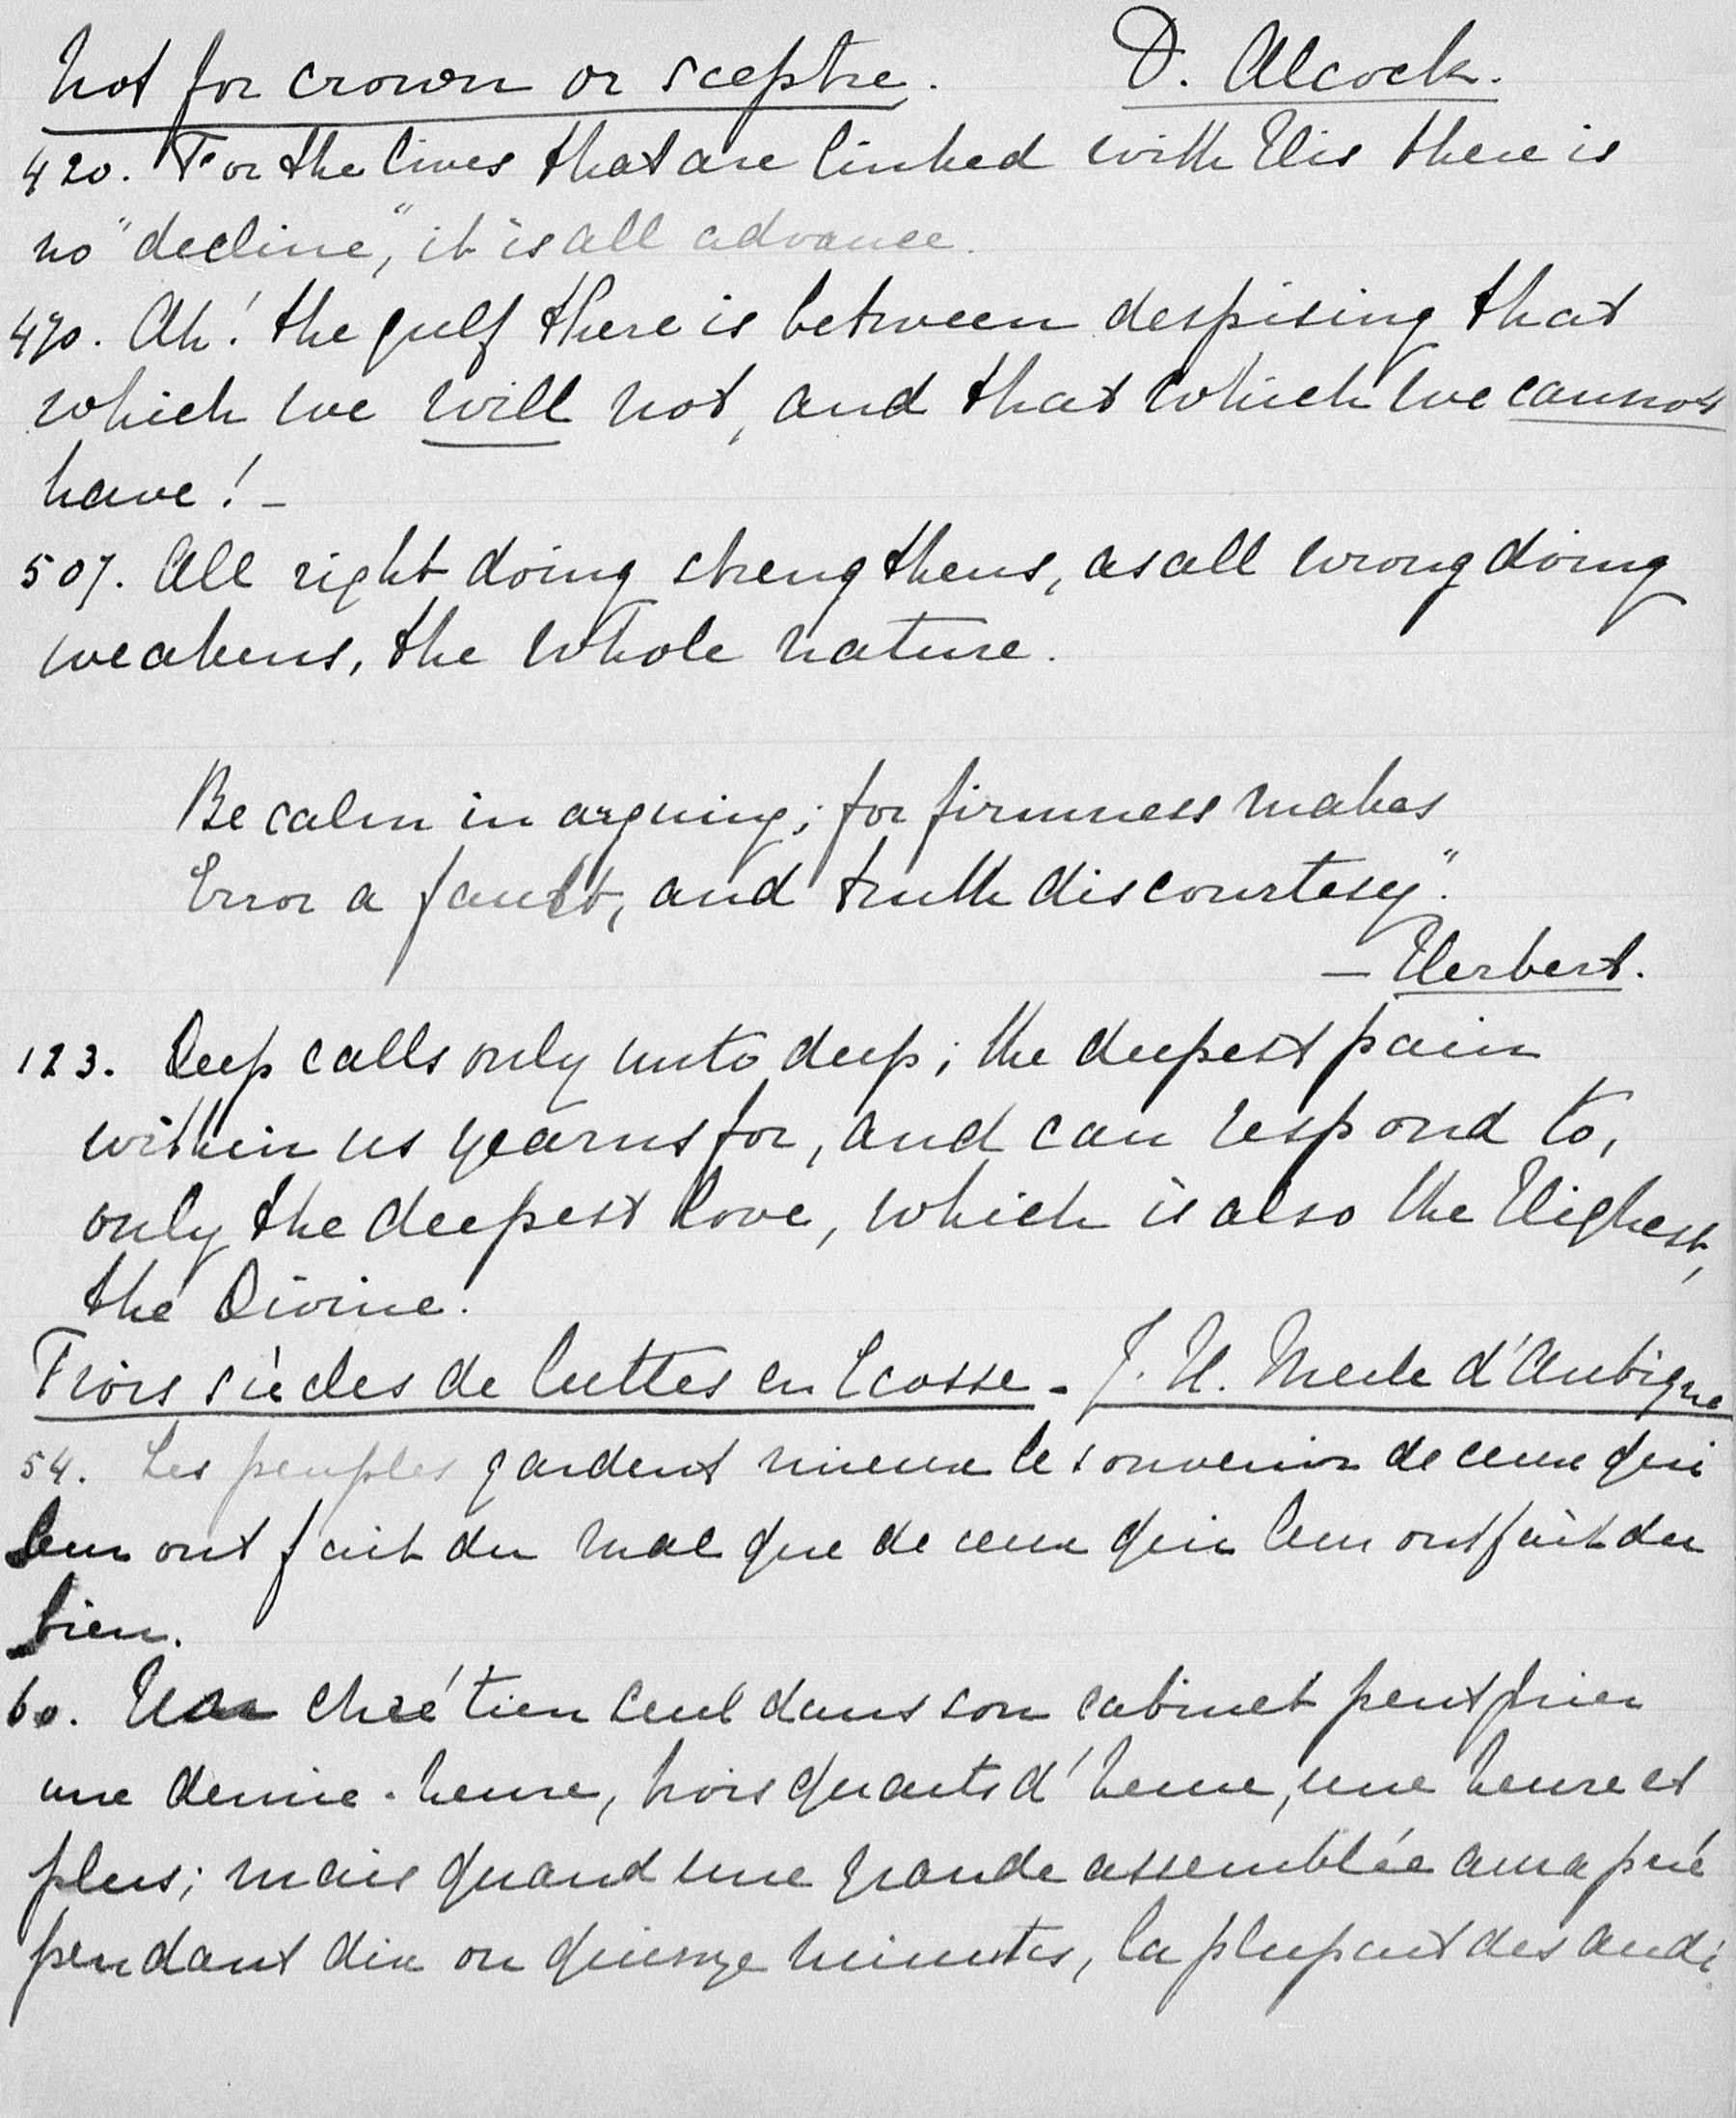 Not for crown or sceptre. D. Alcock.
420. For the lives that are linked with His there is
no "decline," it is all advance.
470. Ah! the gulf there is between despising that
which we will not, and that which we cannot
have! -
507. All right doing strengthens, as all wrong doing
weakens, the whole nature.
Be calm in arguing; for firmness makes
Error a fault, and truth discourtesy."
— Herbert.
123. Deep calls only unto deep; the deepest pain
within us yearns for, and can respond to,
only the deepest love, which is also the Highest,
the Divine.
Trois siècles de luttes en Ecosse - J. H. Merle d'Aubigne
54. Les peuples gardent mieux le souvenir de ceux qui
leur ont fait du mal que de ceux qui leur ont fait du
bien.
60. Un chrétien seul dans son cabinet peut prier
une demie-heure, trois quarts d'heure, une heure et
plus; mais quand une grande assemblée aura prié
pendant dix ou quinze minutes, la plupart des audi